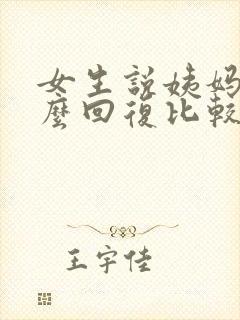 女生說姨媽
麼回復比較
王宇佳